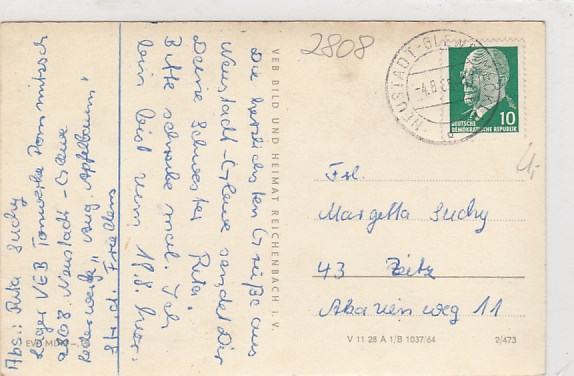 2808
NEUSTADT-GLEWE
-4.8.6
DEUTSCHE
DEMOKRATISCHE REPUBLIK
10
Die herzlichsten Grüße aus
Neustadt-Glewe sendet Dir
Deine Schwester Ruta.
Bitte schreibe mal. Ich
bin bis zum 18.8. hier.
Abs.: Ruta Suchy
Lager VEB Tonwerke Dommitzsch
2808 Neustadt-Glewe
Lederwerk "Aug. Apfelbaum"
Str. d. Friedens
VEB BILD UND HEIMAT REICHENBACH I. V.
Frl.
Margitta Suchy
43 Zeitz
Akazienweg 11
V 11 28 A 1/B 1037/64
2/473